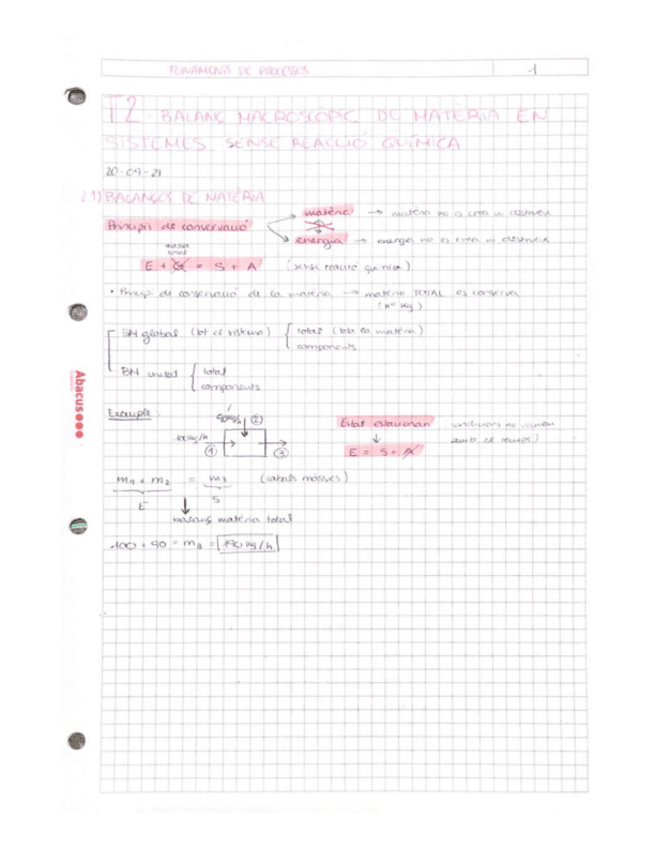 FONAMENTS DE PROCESSOS 1
T2. BALANÇ MACROSCÒPIC DE MATÈRIA EN
SISTEMES SENSE REACCIÓ QUÍMICA
20-09-21
2.1) BALANÇOS DE MATÈRIA
matèria → matèria no es crea ni destrueix
Principis de conservació
energia → energia no es crea ni destrueix
massa
total
E + G = S + A (sense reacció química)
• Principi de conservació de la matèria → matèria TOTAL es conserva
BM global (tot el sistema) total (tota la matèria)
components
BM unitat total
components
Exemple:
90kg/h ②
100kg/h
① ③
Estat estacionari
condicions no varien
amb el temps)
E = S + A
m1 + m2 = m3 (cabals màssics)
E S
balanç matèria total
100 + 90 = m3 = 190 kg/h
Abacus